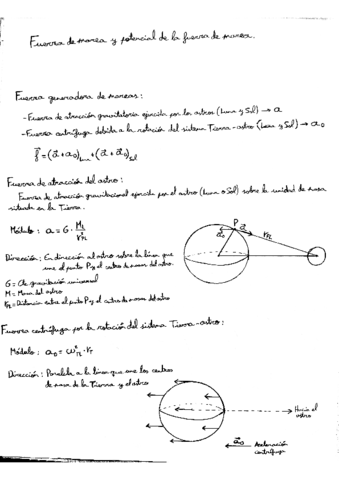 Fuerza de marea y potencial de la fuerza de marea.
Fuerza generadora de mareas:
- Fuerza de atracción gravitatoria ejercida por los astros (Luna y Sol) → a
- Fuerza centrífuga debida a la rotación del sistema Tierra-astro (Luna y Sol) → a₀
f = (a + a₀)Luna + (a + a₀)Sol
Fuerza de atracción del astro:
Fuerza de atracción gravitacional ejercida por el astro (Luna o Sol) sobre la unidad de masa
situada en la Tierra.
Módulo: a = G ·
P
a
Dirección: En dirección al astro sobre la línea que
une el punto P y el centro de masa del astro.
G = Cte gravitación universal
M = Masa del astro
= Distancia entre el punto P y el astro de masa del astro
Fuerza centrífuga por la rotación del sistema Tierra-astro:
Módulo: a₀ =
Dirección: Paralela a la línea que une los centros
de masa de la Tierra y el astro
Hacia el
astro
a₀ Aceleración
centrífuga